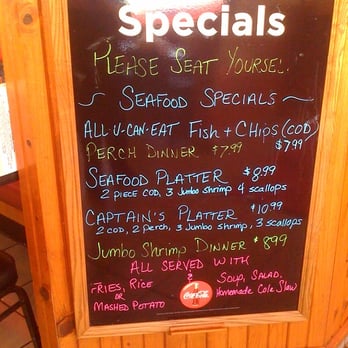 Specials
PLEASE SEAT YOURSEL.
~ SEAFOOD SPECIALS ~
ALL U-CAN-EAT Fish + CHips (COD)
$7.99
PERCH DINNER $7.99
SEAFOOD PLATTER $8.99
2 PIECE COD, 3 Jumbo shrimp 4 scallops
CAPTAIN'S PLATTER $10.99
2 COD, 2 Perch, 3 Jumbo shrimp, 3 scallops
Jumbo Shrimp DINNER $8.99
ALL SERVED WITH
FRIES, RICE
OR
MASHED POTATO
&
Soup, SALAD,
Homemade Cole Slaw
Coca-Cola